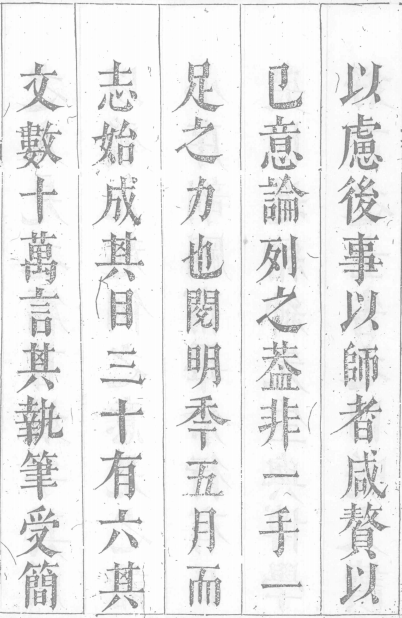 以慮後事以師者咸贅以
已意論列之葢非一手一
足之力也閱明秊五月而
志始成其目三十有六其
文數十萬言其執筆受簡